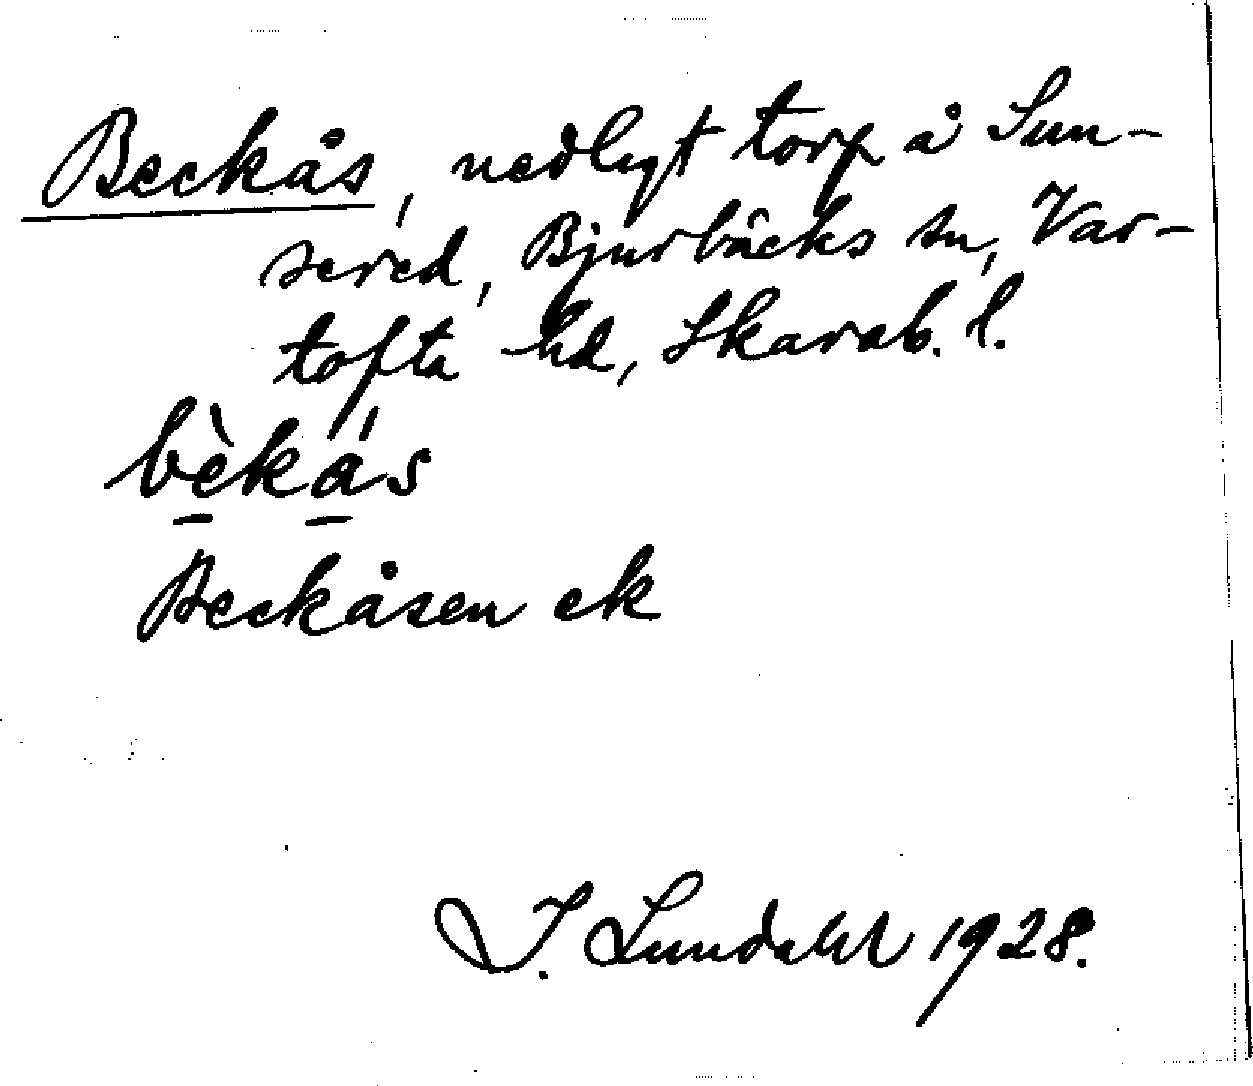 Beckås, nedlagt torp å Sun-
sered, Bjurbäcks sn, Var-
tofta hd, Skarab. l.
bèkås
Beckåsen ek
I. Lundahl 1928.